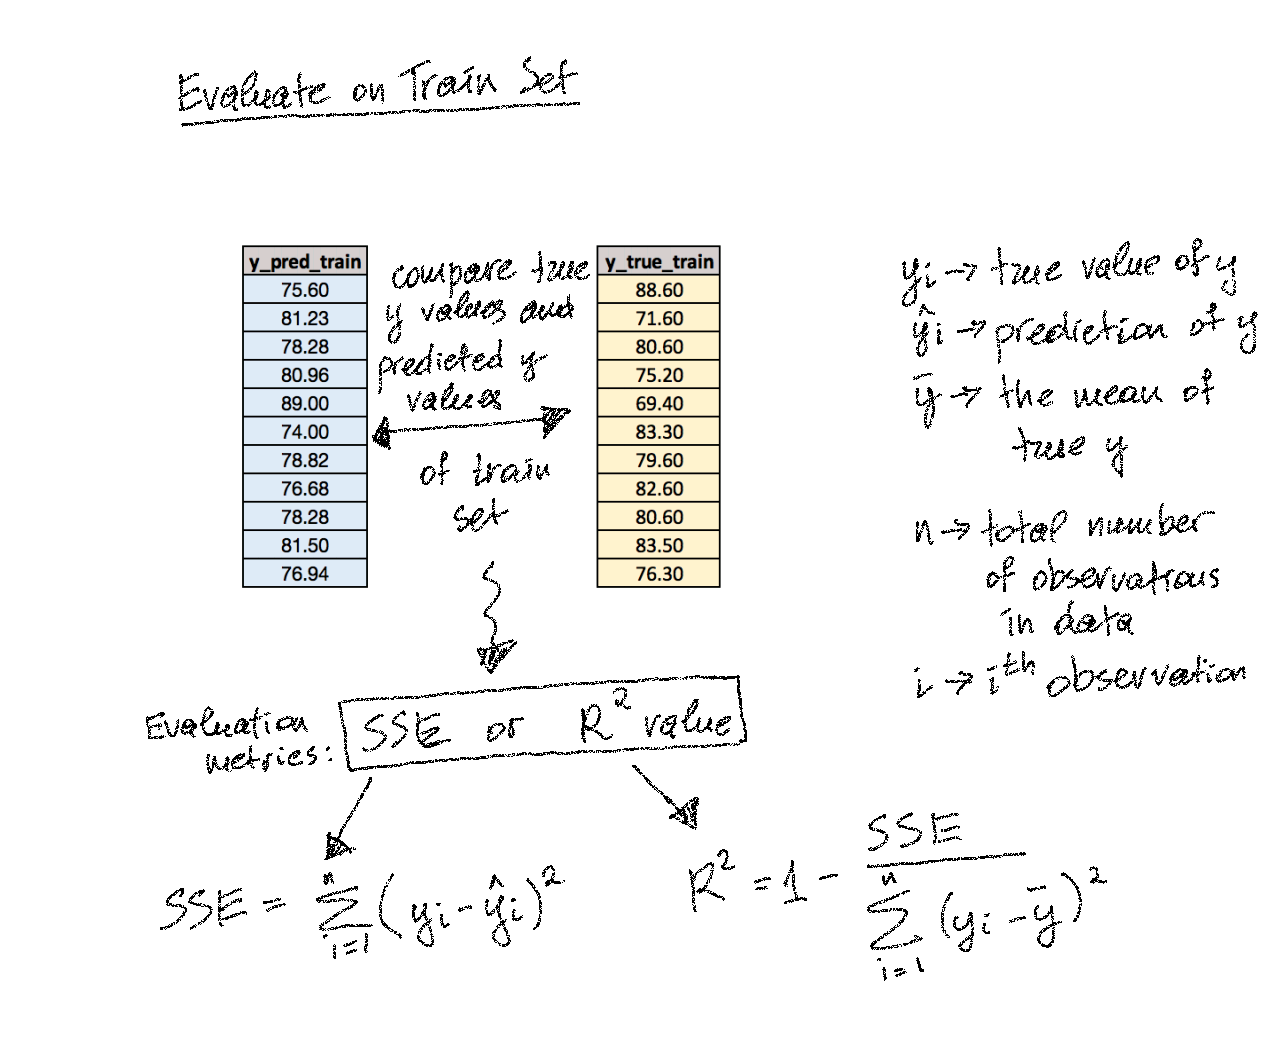 Evaluate on Train Set
y_pred_train
75.60
81.23
78.28
80.96
89.00
74.00
78.82
76.68
78.28
81.50
76.94
compare true
y values and
predicted y
values
of train
set
y_true_train
88.60
71.60
80.60
75.20
69.40
83.30
79.60
82.60
80.60
83.50
76.30
yi → true value of y
ŷi → prediction of y
ȳ → the mean of
true y
n → total number
of observations
in data
i → i^th observation
Evaluation
metrics:
SSE or R² value
SSE = ∑_{i=1}^{n} (yi - ŷi)²
R² = 1 - SSE / ∑_{i=1}^{n} (yi - ȳ)²